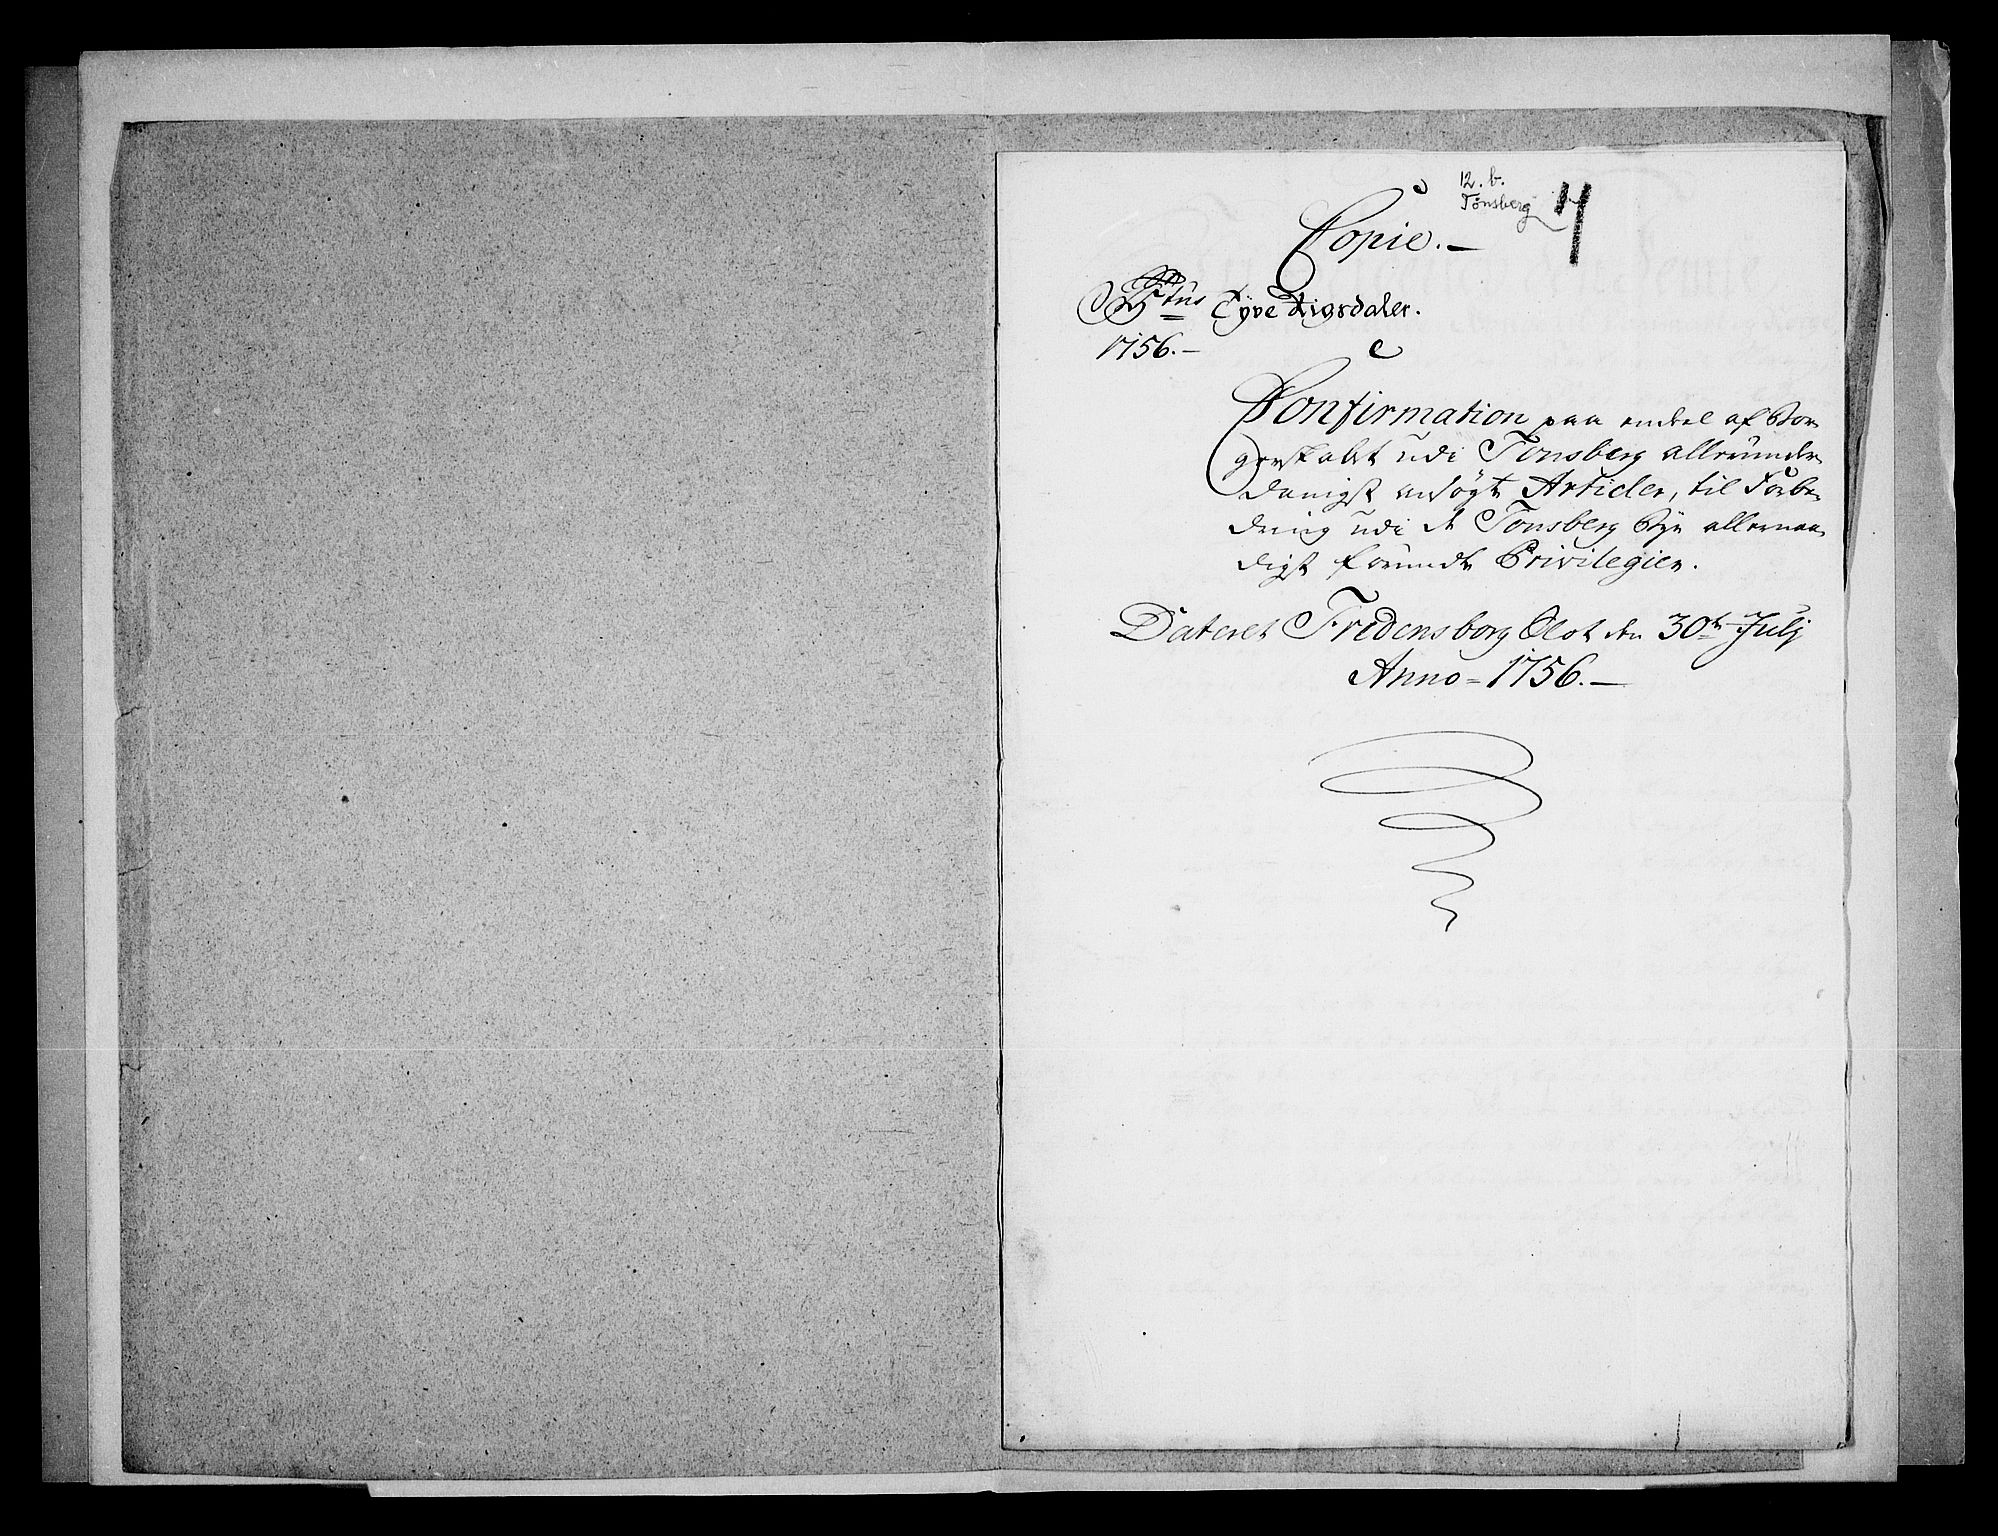 12. b.
Tønsberg
4
Copie. —
Tÿve Rigsdaler.
1756. —
Confirmation paa endeel af Bor-
gerskabet udi Tonsberg allerunder-
danigst ansøgte Articler, til Forbe-
dring udi de Tonsberg Bye allernaa-
digst forundte Privilegier.
Dateret Fredensborg Slot den 30te Julj
Anno = 1756. —